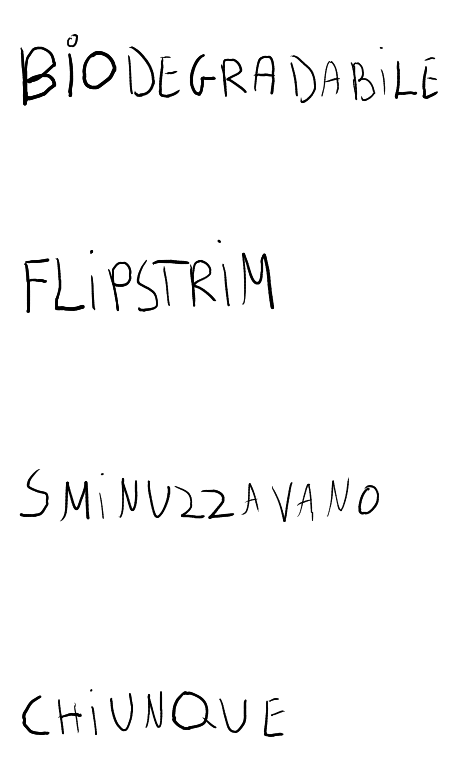 BiODEGRADABiLE
FLiPSTRiM
SMiNUZZAVANO
CHiUNQUE